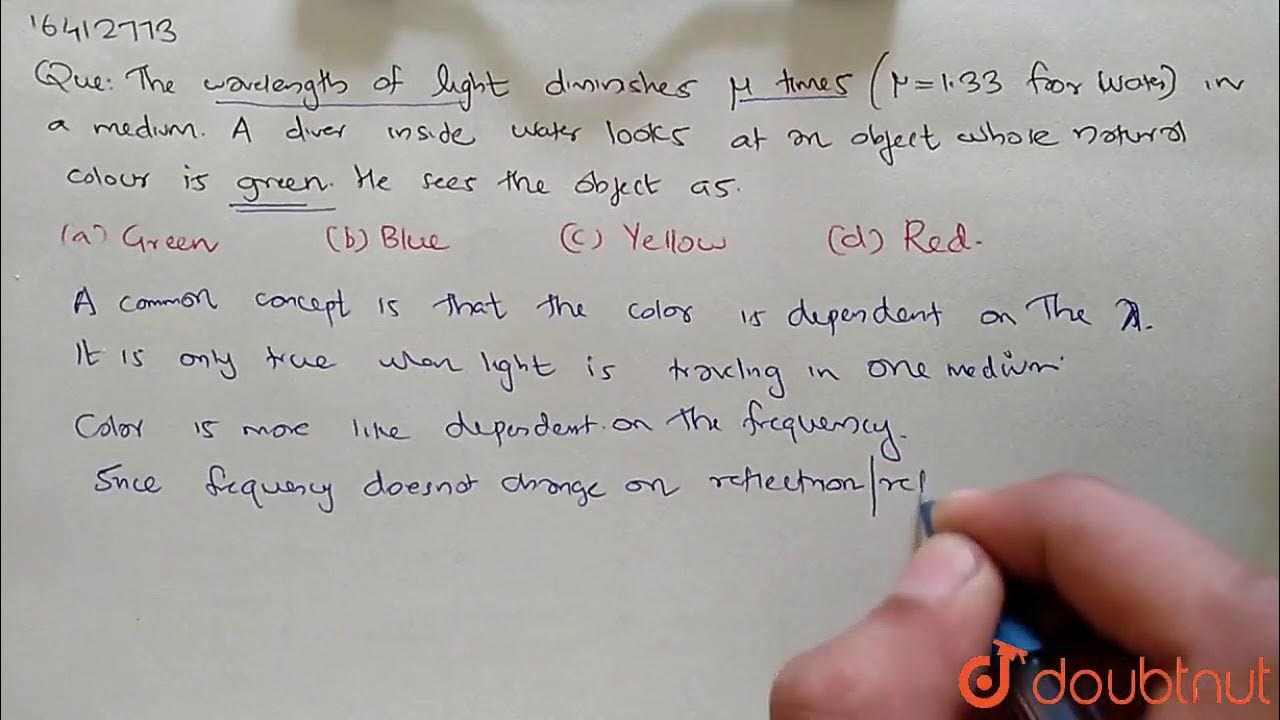 16412773
Que: The wavelength of light diminishes μ times (μ=1.33 for water) in
a medium. A diver inside water looks at an object whose natural
colour is green. He sees the object as.
(a) Green (b) Blue (c) Yellow (d) Red.
A common concept is that the color is dependent on The λ.
It is only true when light is traveling in one medium.
Color is more like dependent on the frequency.
Since frequency doesnot change on reflection/ref
doubtnut